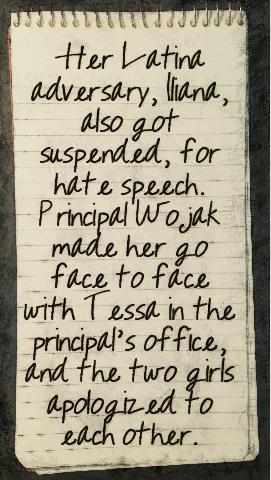 Her Latina
adversary, Iliana,
also got
suspended, for
hate speech.
Principal Wojak
made her go
face to face
with Tessa in the
principal's office,
and the two girls
apologized to
each other.